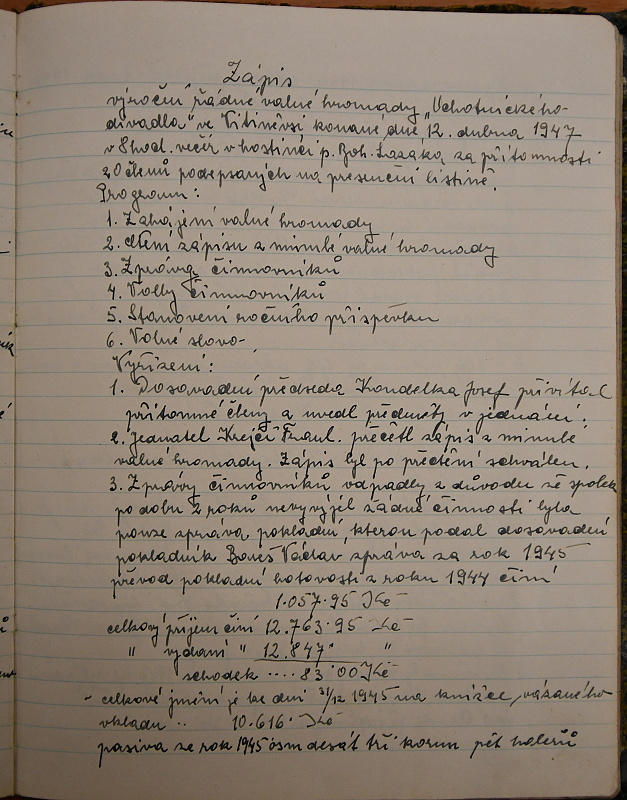 Zápis
výroční řádné valné hromady „Ochotnického-
divadla" ve Vitiněvsi konané dne 12. dubna 1947
v 8 hod. večer v hostinci p. Boh. Lazáka za přítomnosti
20 členů podepsaných na presenční listině.
Program:
1. Zahájení valné hromady
2. čtení zápisu z minulé valné hromady
3. Zpráva činnovníků
4. Volby činnovníků
5. Stanovení ročního příspěvku
6. Volné slovo-
Vyřízení:
1. Dosavadní předseda Kondelka Josef přivítal
přítomné členy a uvedl předměty v jednání.
2. jednatel Krejčí Frant. přečetl zápis z minulé
valné hromady. Zápis byl po přečtení schválen.
3. Zprávy činnovníků odpadly z důvodu že spolek
po dobu 2 roků nevyvýjel žádné činnosti byla
pouze zpráva pokladní, kterou podal dosavadní
pokladník Bareš Václav zpráva za rok 1945
převod pokladní hotovosti z roku 1944 činí
1.057.95 Kč
celkový příjem činí 12.763.95 Kč
" vydání " 12.847. "
schodek .... 83.00 Kč
- celkové jmění je ke dni 31/12 1945 na knížce vázaného
vkladu .. 10.616. Kč
pasiva ze rok 1945 osmdesát tři korun pět haleřů